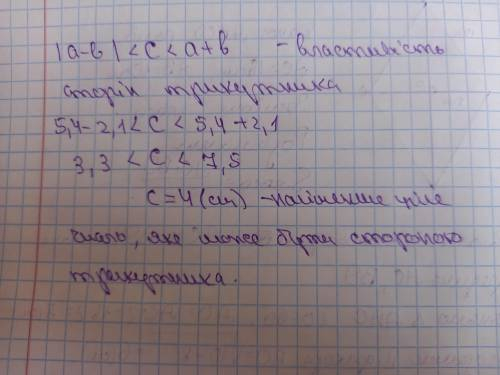 |a-b| < c < a+b - властивість
сторін трикутника
5,4-2,1 < c < 5,4+2,1
3,3 < c < 7,5
c=4 (см) - найменше ціле
число, яке може бути стороною
трикутника.